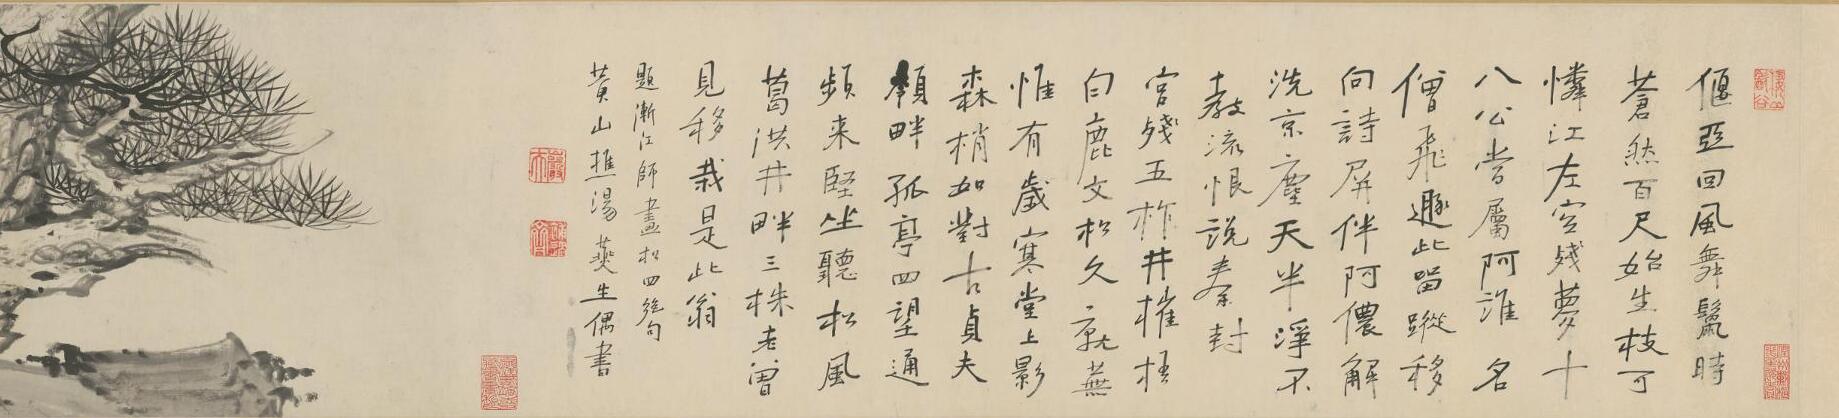 偃亞回風舞鬣時
蒼然百尺始生枝可
憐江左空殘夢十
八公當屬阿誰 名
僧飛遯此留蹤移
向詩屏伴阿儂解
洗京塵天半淨不
教流恨說秦封
宮殘五柞井摧梧
白鹿文松久就蕪
惟有歲寒堂上影
森梢如對古貞夫
嶺畔孤亭四望通
頻来堅坐聽松風
葛洪井畔三株老曽
見移栽是此翁
題漸江師畫松四絶句
黄山樵湯燕生偶書